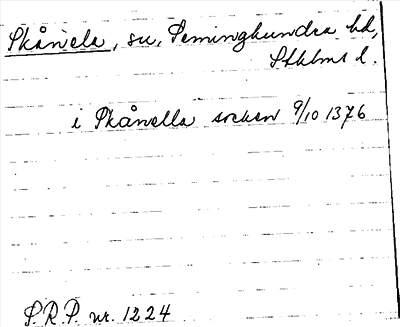 Skånela, sn, Seminghundra hd,
Sthlms l.
i Skånella socken 9/10 1376
S.R.P. nr. 1224